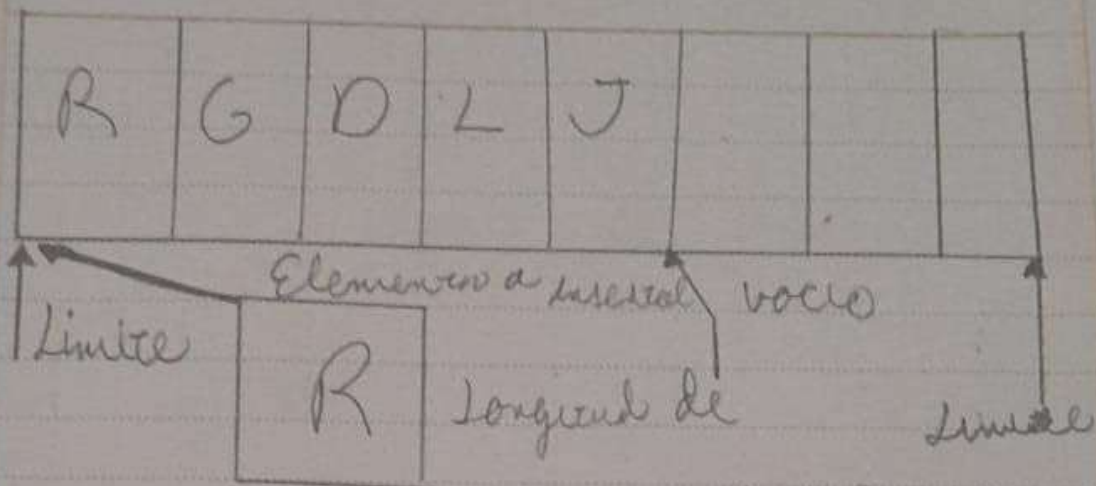 R G D L J
Elementro a insertal vacio
Limite
R Longitud de Limite